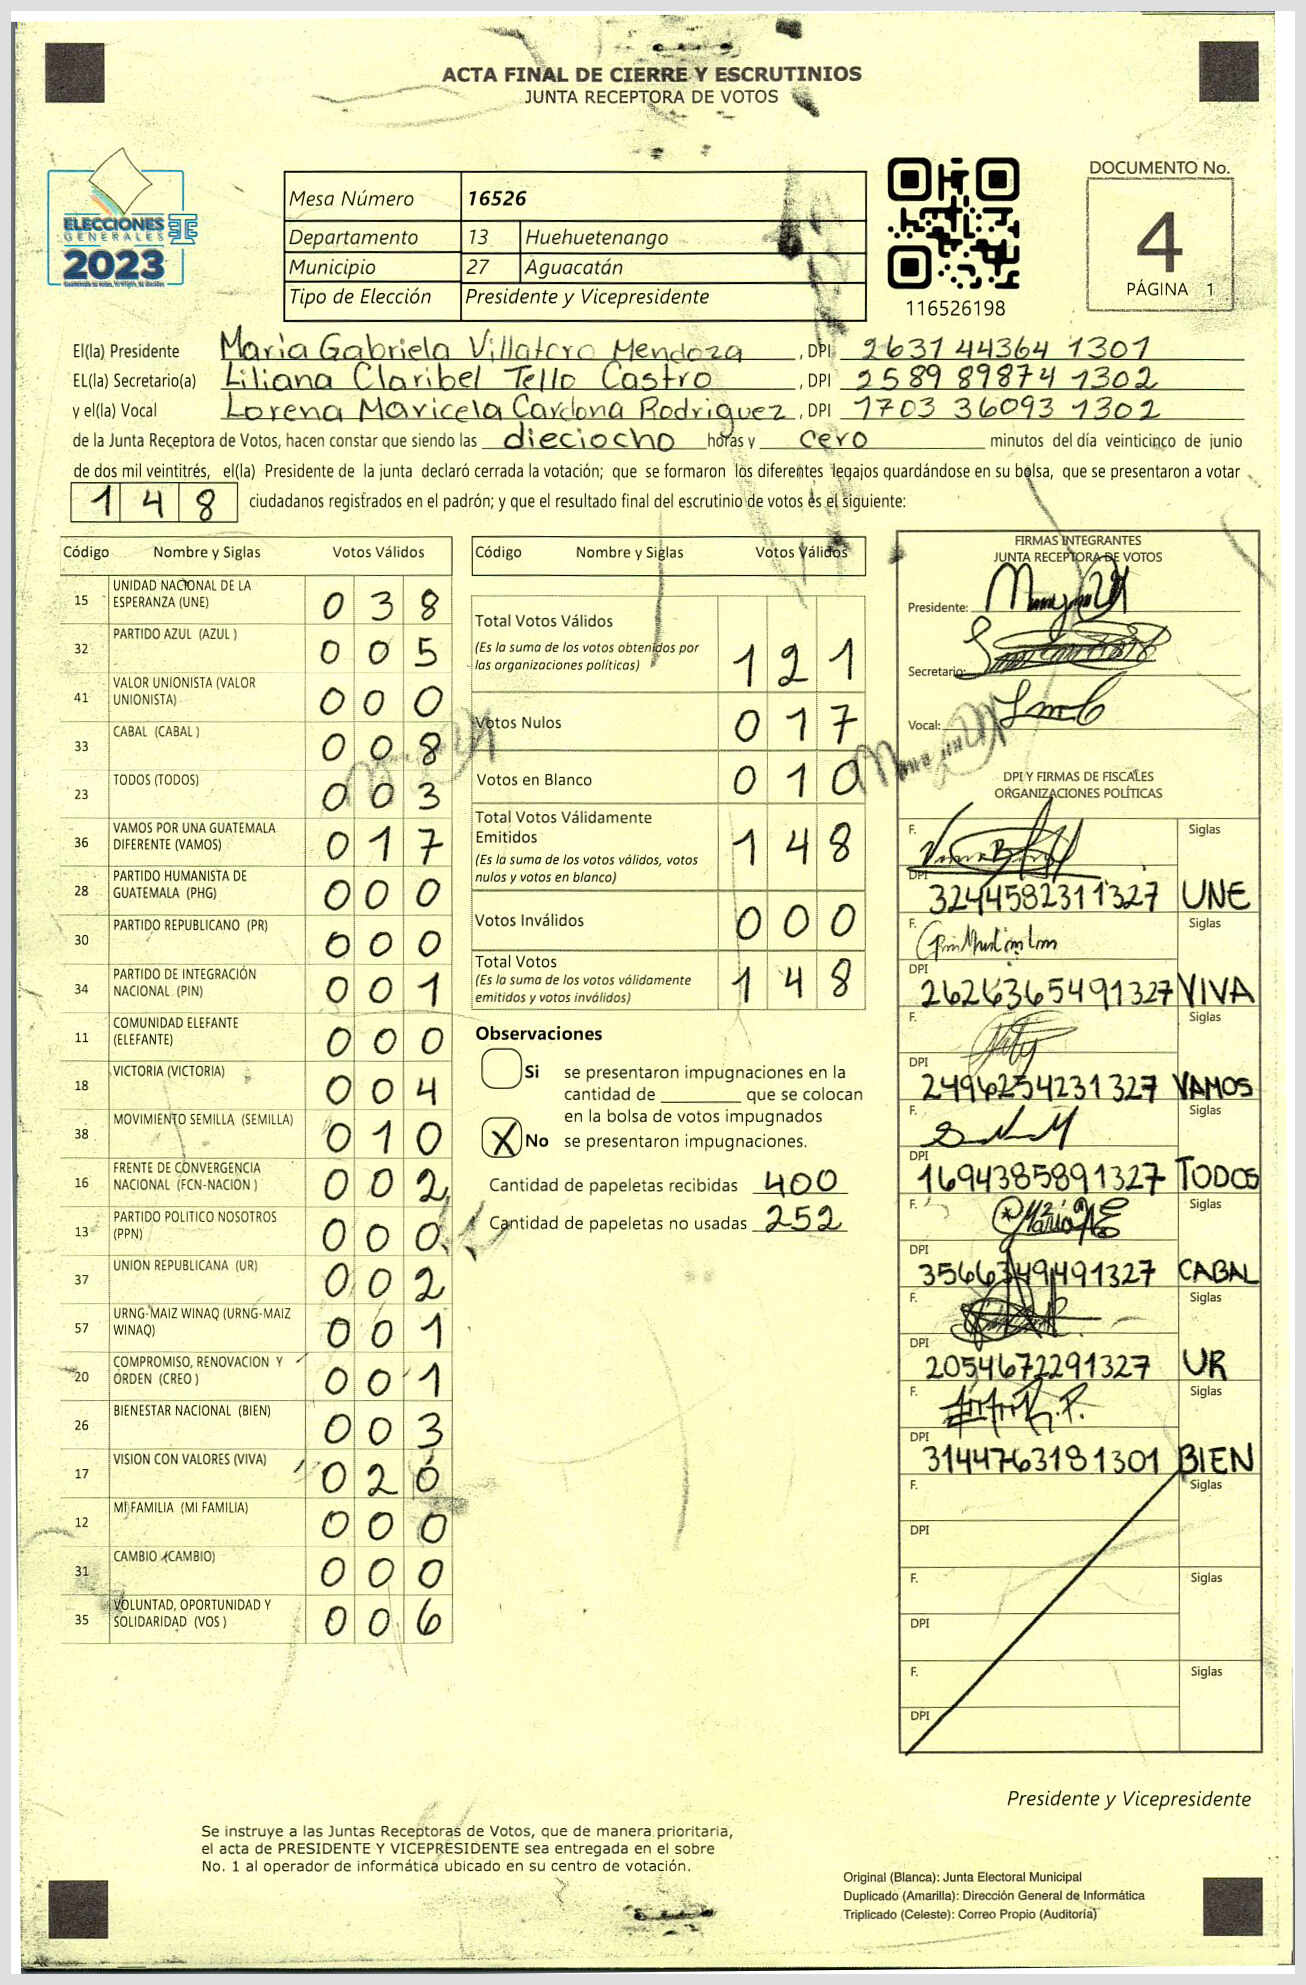 ACTA FINAL DE CIERRE Y ESCRUTINIOS
JUNTA RECEPTORA DE VOTOS
ELECCIONES
GENERALES
2023
Mesa Número 16526
Departamento 13 Huehuetenango
Municipio 27 Aguacatán
Tipo de Elección Presidente y Vicepresidente
116526198
DOCUMENTO No.
4
PÁGINA 1
El(la) Presidente Maria Gabriela Villatoro Mendoza , DPI 2631 44364 1301
EL(la) Secretario(a) Liliana Claribel Tello Castro , DPI 2589 89874 1302
y el(la) Vocal Lorena Maricela Cardona Rodriguez , DPI 1703 36093 1302
de la Junta Receptora de Votos, hacen constar que siendo las dieciocho horas y cero minutos del día veinticinco de junio
de dos mil veintitrés, el(la) Presidente de la junta declaró cerrada la votación; que se formaron los diferentes legajos guardándose en su bolsa, que se presentaron a votar
148 ciudadanos registrados en el padrón; y que el resultado final del escrutinio de votos es el siguiente:
Código Nombre y Siglas Votos Válidos
15 UNIDAD NACIONAL DE LA ESPERANZA (UNE) 038
32 PARTIDO AZUL (AZUL ) 005
41 VALOR UNIONISTA (VALOR UNIONISTA) 000
33 CABAL (CABAL ) 008
23 TODOS (TODOS) 003
36 VAMOS POR UNA GUATEMALA DIFERENTE (VAMOS) 017
28 PARTIDO HUMANISTA DE GUATEMALA (PHG) 000
30 PARTIDO REPUBLICANO (PR) 000
34 PARTIDO DE INTEGRACIÓN NACIONAL (PIN) 001
11 COMUNIDAD ELEFANTE (ELEFANTE) 000
18 VICTORIA (VICTORIA) 004
38 MOVIMIENTO SEMILLA (SEMILLA) 010
16 FRENTE DE CONVERGENCIA NACIONAL (FCN-NACION ) 002
13 PARTIDO POLITICO NOSOTROS (PPN) 000
37 UNION REPUBLICANA (UR) 002
57 URNG-MAIZ WINAQ (URNG-MAIZ WINAQ) 001
20 COMPROMISO, RENOVACION Y ORDEN (CREO ) 001
26 BIENESTAR NACIONAL (BIEN) 003
17 VISION CON VALORES (VIVA) 020
12 MI FAMILIA (MI FAMILIA) 000
31 CAMBIO (CAMBIO) 000
35 VOLUNTAD, OPORTUNIDAD Y SOLIDARIDAD (VOS ) 006
Código Nombre y Siglas Votos Válidos
Total Votos Válidos 121
(Es la suma de los votos obtenidos por
las organizaciones políticas)
Votos Nulos 017
Votos en Blanco 010
Total Votos Válidamente
Emitidos 148
(Es la suma de los votos válidos, votos
nulos y votos en blanco)
Votos Inválidos 000
Total Votos 148
(Es la suma de los votos válidamente
emitidos y votos inválidos)
Observaciones
Si se presentaron impugnaciones en la
cantidad de ________ que se colocan
en la bolsa de votos impugnados
X No se presentaron impugnaciones.
Cantidad de papeletas recibidas 400
Cantidad de papeletas no usadas 252
FIRMAS INTEGRANTES
JUNTA RECEPTORA DE VOTOS
Presidente:
Secretario:
Vocal:
DPI Y FIRMAS DE FISCALES
ORGANIZACIONES POLÍTICAS
F. Siglas
DPI 3244582311327 UNE
F. Siglas
DPI 2626365491327 VIVA
F. Siglas
DPI 2496254231327 VAMOS
F. Siglas
DPI 1694385891327 TODOS
F. Siglas
DPI 3566349491327 CABAL
F. Siglas
DPI 2054672291327 UR
F. Siglas
DPI 3144763181301 BIEN
F. Siglas
DPI
F. Siglas
DPI
F. Siglas
DPI
Presidente y Vicepresidente
Se instruye a las Juntas Receptoras de Votos, que de manera prioritaria,
el acta de PRESIDENTE Y VICEPRESIDENTE sea entregada en el sobre
No. 1 al operador de informática ubicado en su centro de votación.
Original (Blanca): Junta Electoral Municipal
Duplicado (Amarilla): Dirección General de Informática
Triplicado (Celeste): Correo Propio (Auditoría)